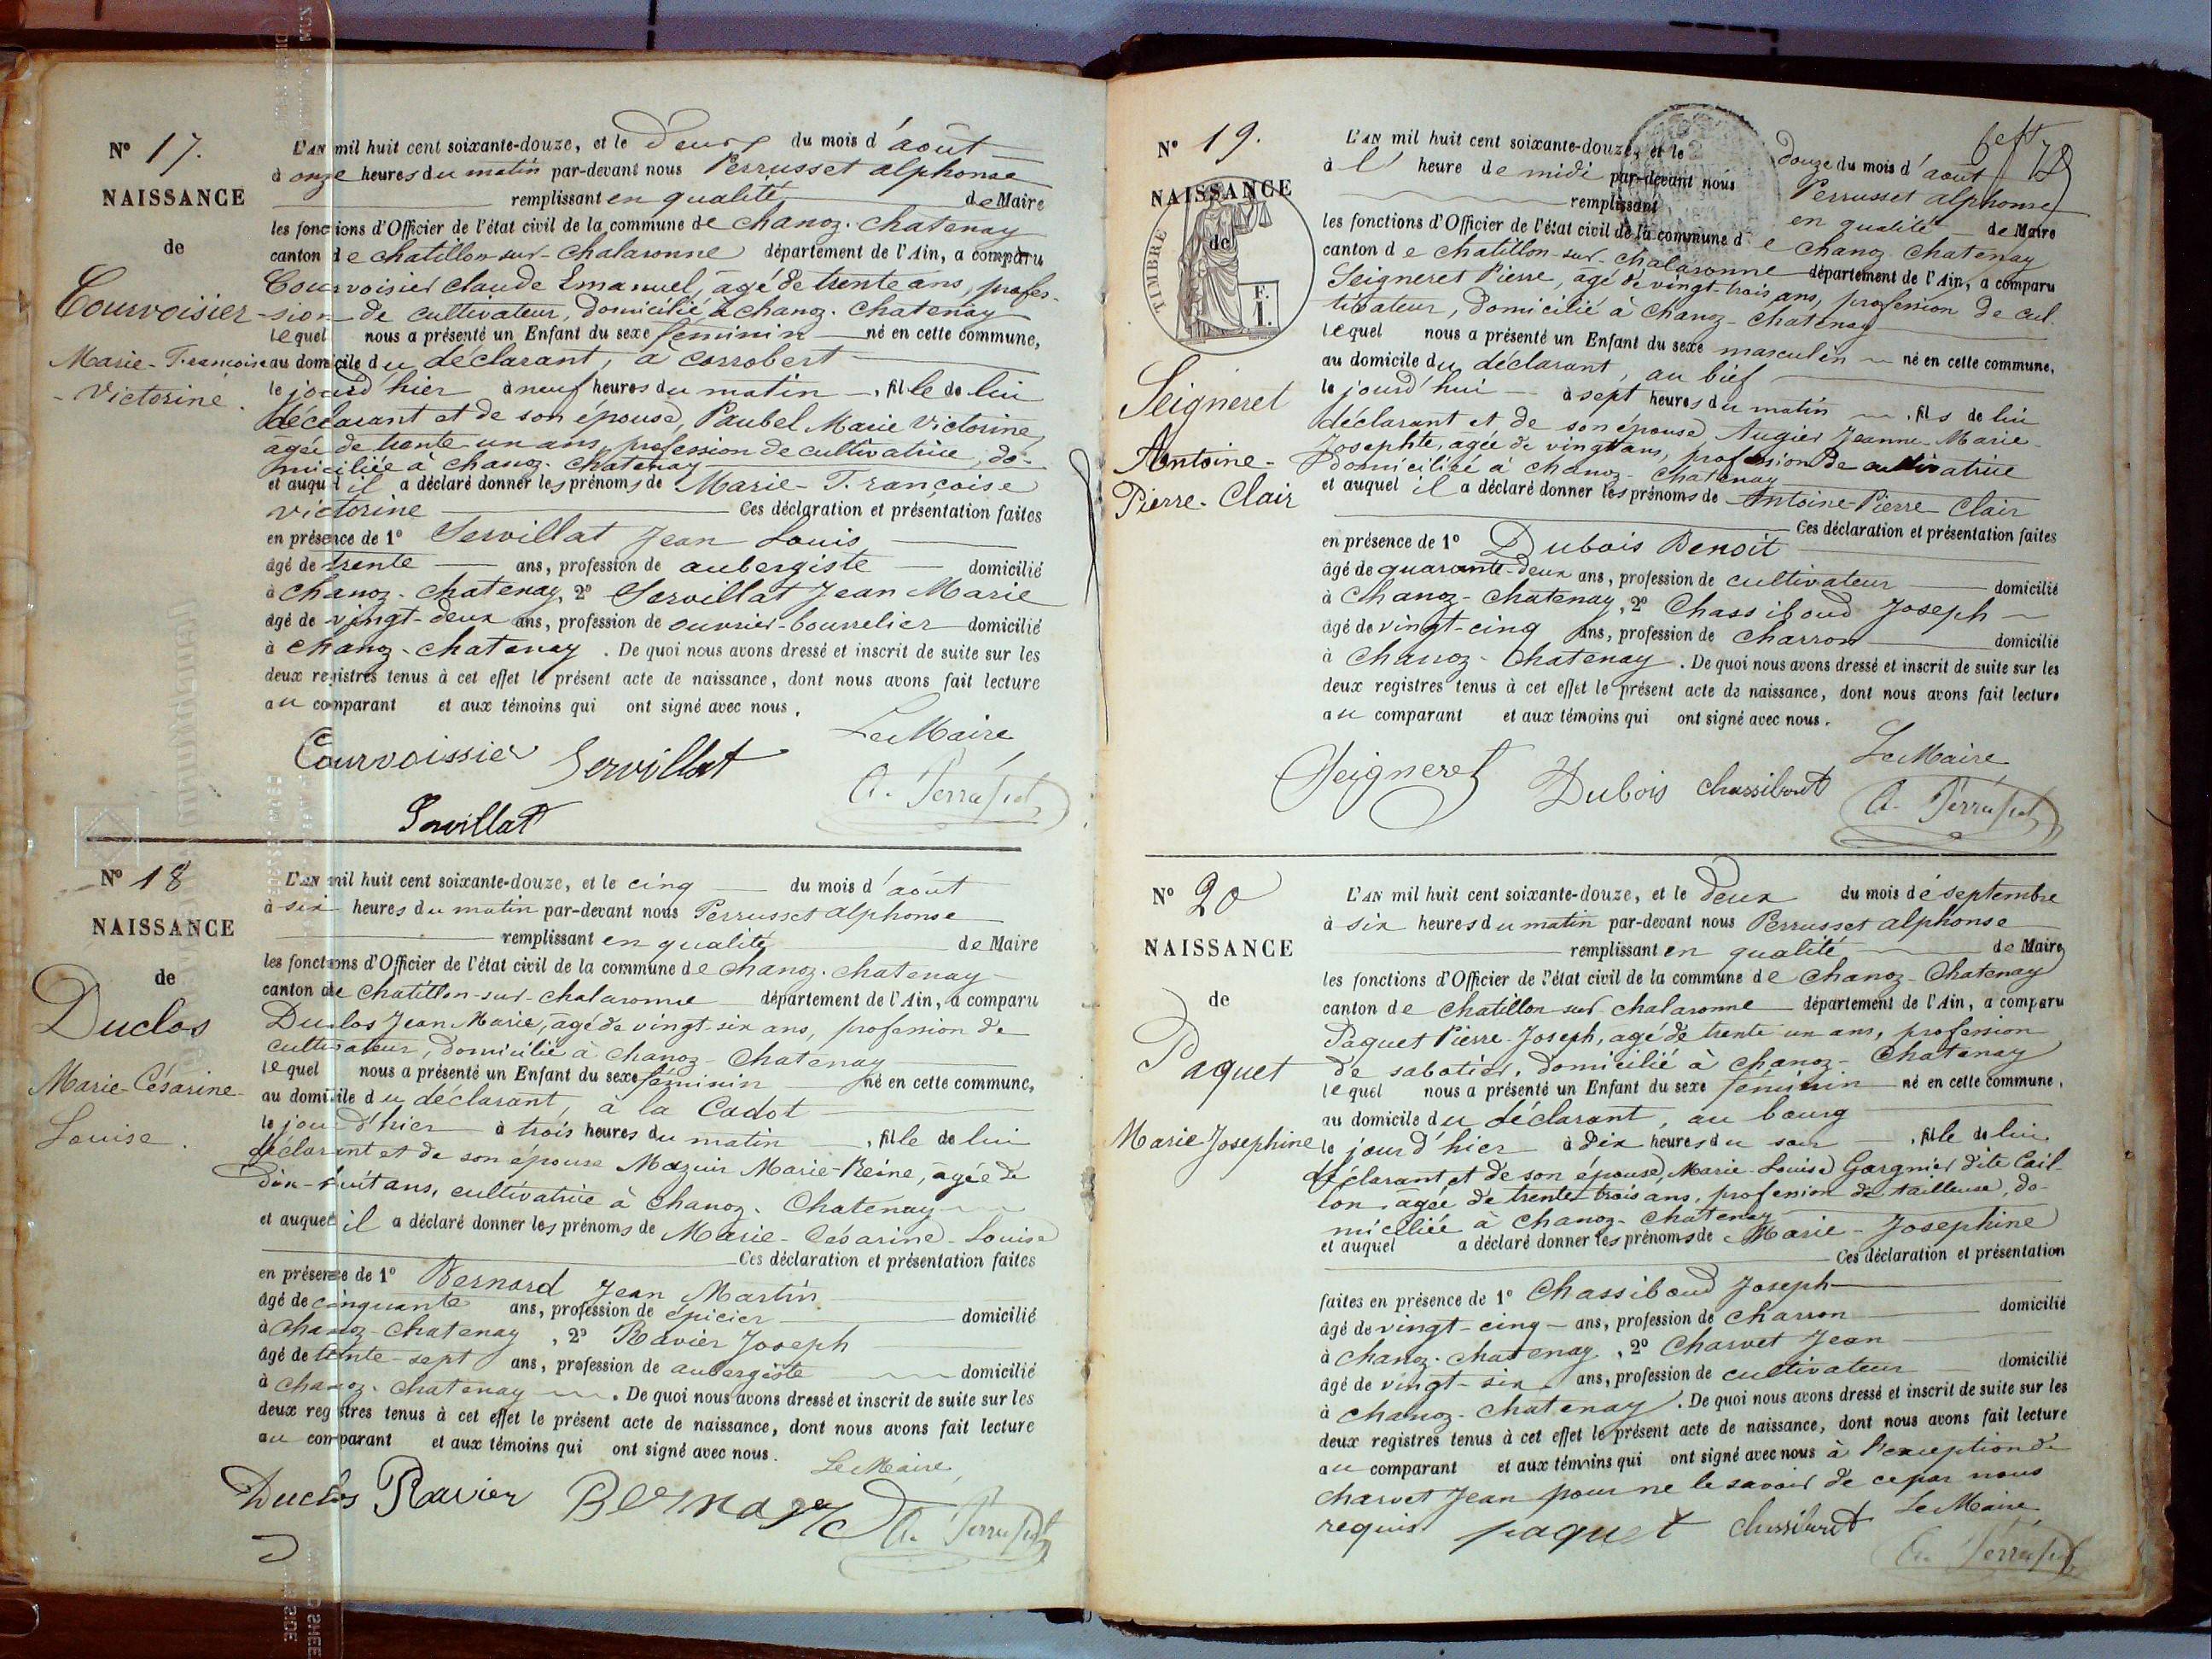 N° 17.
NAISSANCE
de
Courvoisier
Marie-Françoise
-Victorine.
L'AN mil huit cent soixante-douze, et le deux du mois d'août
à onze heures du matin par-devant nous Perrusset alphonse
remplissant en qualité de Maire
les fonctions d'Officier de l'état civil de la commune de chanoz-chatenay
canton de chatillon-sur-chalaronne département de l'Ain, a comparu
Courvoisier Claude Emanuel, agé de trente ans, profes-
sion de cultivateur, domicilié à chanoz-chatenay
lequel nous a présenté un Enfant du sexe féminin né en cette commune,
au domicile du déclarant, à corrobert
le jour d'hier à neuf heures du matin, fille de lui
déclarant et de son épouse, Paubel Marie Victorine,
agée de trente-un ans, profession de cultivatrice, do-
miciliée à chanoz-chatenay
et auquel il a déclaré donner les prénoms de Marie-Françoise
victorine Ces déclaration et présentation faites
en présence de 1° Servillat Jean Louis
âgé de trente ans, profession de aubergiste domicilié
à chanoz-chatenay, 2° Servillat Jean Marie
âgé de vingt-deux ans, profession de ouvrier-bourrelier domicilié
à chanoz-chatenay. De quoi nous avons dressé et inscrit de suite sur les
deux registres tenus à cet effet le présent acte de naissance, dont nous avons fait lecture
au comparant et aux témoins qui ont signé avec nous.
Le Maire
Courvoissier Servillat
A. Perrusset
Servillat
N° 18
NAISSANCE
de
Duclos
Marie-Césarine-
Louise.
L'AN mil huit cent soixante-douze, et le cinq du mois d'août
à six heures du matin par-devant nous Perrusset alphonse
remplissant en qualité de Maire
les fonctions d'Officier de l'état civil de la commune de chanoz-chatenay
canton de chatillon-sur-chalaronne département de l'Ain, a comparu
Duclos Jean Marie, agé de vingt-six ans, profession de
cultivateur, domicilié à chanoz-chatenay
lequel nous a présenté un Enfant du sexe féminin né en cette commune,
au domicile du déclarant, à la Cadot
le jour d'hier à trois heures du matin, fille de lui
déclarant et de son épouse Mazuir Marie-Reine, agée de
dix-huit ans, cultivatrice à chanoz-chatenay
et auquel il a déclaré donner les prénoms de Marie-Césarine-Louise
Ces déclaration et présentation faites
en présence de 1° Bernard Jean Martin
âgé de cinquante ans, profession de épicier domicilié
à chanoz-chatenay, 2° Ravier Joseph
âgé de trente-sept ans, profession de aubergiste domicilié
à chanoz-chatenay. De quoi nous avons dressé et inscrit de suite sur les
deux registres tenus à cet effet le présent acte de naissance, dont nous avons fait lecture
au comparant et aux témoins qui ont signé avec nous.
Le Maire,
Duclos Ravier Bernard A. Perrusset
N° 19.
NAISSANCE
de
TIMBRE
F.
I.
Seigneret
Antoine-
Pierre-Clair
L'AN mil huit cent soixante-douze, et le douze du mois d'août
à l'heure de midi par-devant nous Perrusset alphonse
remplissant en qualité de Maire
les fonctions d'Officier de l'état civil de la commune de chanoz chatenay
canton de chatillon-sur-chalaronne département de l'Ain, a comparu
Seigneret Pierre, agé de vingt-trois ans, profession de cul-
tivateur, domicilié à chanoz-chatenay
lequel nous a présenté un Enfant du sexe masculin né en cette commune,
au domicile du déclarant, au bief
le jourd'hui à sept heures du matin, fils de lui
déclarant et de son épouse Augier Jeanne-Marie-
Josephte, agée de vingt ans, profession de cultivatrice
domiciliée à chanoz-chatenay
et auquel il a déclaré donner les prénoms de Antoine-Pierre Clair
Ces déclaration et présentation faites
en présence de 1° Dubois Benoit
âgé de quarante-deux ans, profession de cultivateur domicilié
à chanoz-chatenay, 2° Chassiboud Joseph
âgé de vingt-cinq ans, profession de charron domicilié
à chanoz-chatenay. De quoi nous avons dressé et inscrit de suite sur les
deux registres tenus à cet effet le présent acte de naissance, dont nous avons fait lecture
au comparant et aux témoins qui ont signé avec nous.
Le Maire
Seigneret Dubois Chassiboud A. Perrusset
N° 20
NAISSANCE
de
Paquet
Marie Josephine
L'AN mil huit cent soixante-douze, et le deux du mois de septembre
à six heures du matin par-devant nous Perrusset alphonse
remplissant en qualité de Maire
les fonctions d'Officier de l'état civil de la commune de chanoz-chatenay
canton de chatillon sur chalaronne département de l'Ain, a comparu
Paquet Pierre-Joseph, agé de trente un ans, profession
de sabotier, domicilié à chanoz-chatenay
lequel nous a présenté un Enfant du sexe féminin né en cette commune,
au domicile du déclarant, au bourg
le jour d'hier à dix heures du soir, fille de lui
déclarant et de son épouse, Marie-Louise Gargnier dite Cail-
lon, agée de trente-trois ans, profession de tailleuse, do-
miciliée à chanoz-chatenay
et auquel a déclaré donner les prénoms de Marie-Josephine
Ces déclaration et présentation
faites en présence de 1° Chassiboud Joseph
âgé de vingt-cinq ans, profession de charron domicilié
à chanoz-chatenay, 2° Charvet Jean
âgé de vingt-six ans, profession de cultivateur domicilié
à chanoz-chatenay. De quoi nous avons dressé et inscrit de suite sur les
deux registres tenus à cet effet le présent acte de naissance, dont nous avons fait lecture
au comparant et aux témoins qui ont signé avec nous à l'exception de
charvet Jean pour ne le savoir de ce par nous
requis Le Maire
paquet Chassiboud A. Perrusset